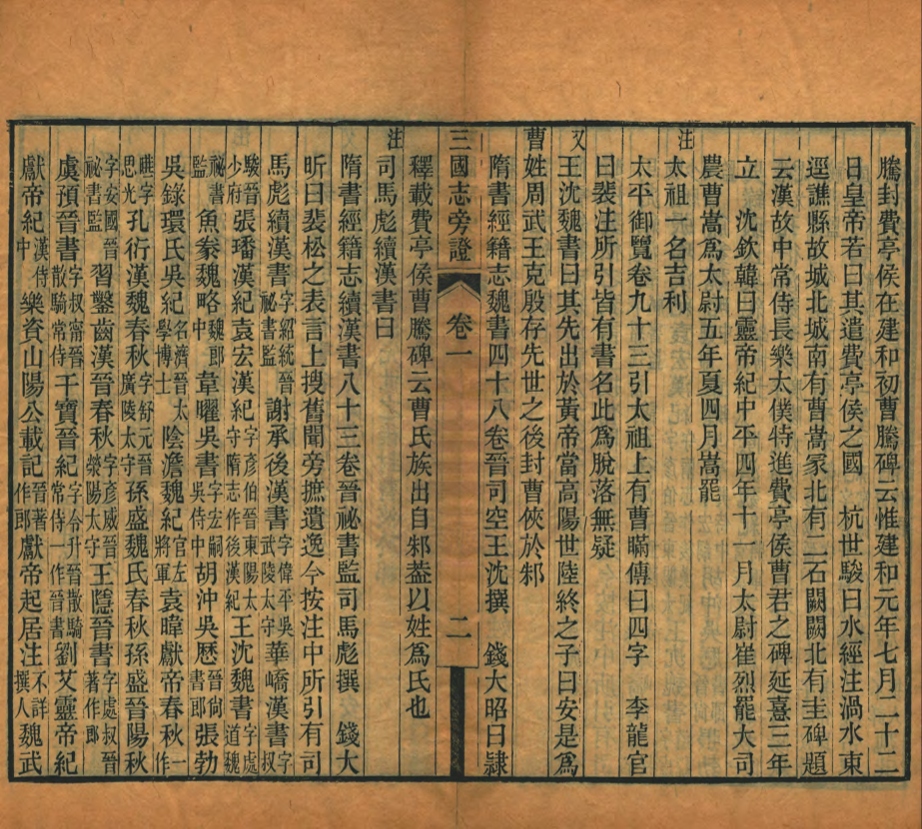 騰封費亭侯在建和初曹騰碑云惟建和元年七月二十二
日皇帝若曰其遣費亭侯之國　杭世駿曰水經注渦水東
逕譙縣故城北城南有曹嵩冢北有二石闕闕北有圭碑題
云漢故中常侍長樂太僕特進費亭侯曹君之碑延熹三年
立　沈欽韓曰靈帝紀中平四年十一月太尉崔烈罷大司
農曹嵩爲太尉五年夏四月嵩罷
注
太祖一名吉利
太平御覽卷九十三引太祖上有曹瞞傳曰四字　李龍官
曰裴注所引皆有書名此爲脫落無疑
又
王沈魏書曰其先出於黃帝當高陽世陸終之子曰安是爲
曹姓周武王克殷存先世之後封曹俠於邾
隋書經籍志魏書四十八卷晉司空王沈撰　錢大昭曰隷
三國志旁證　卷一　二
釋載費亭侯曹騰碑云曹氏族出自邾葢以姓爲氏也
注
司馬彪續漢書曰
隋書經籍志續漢書八十三卷晉祕書監司馬彪撰　錢大
昕曰裴松之表言上搜舊聞旁摭遺逸今按注中所引有司
馬彪續漢書字紹統晉祕書監謝承後漢書字偉平吳武陵太守華嶠漢書字叔
駿晉少府張璠漢紀袁宏漢紀字彥伯晉東陽太守隋志作後漢紀王沈魏書字處道魏
祕書監魚豢魏略魏郎中韋曜吳書字宏嗣吳侍中胡沖吳歷晉尙書郎張勃
吳錄環氏吳紀名濟晉太學博士陰澹魏紀官左將軍袁暐獻帝春秋一作
曄字思光孔衍漢魏春秋字舒元晉廣陵太守孫盛魏氏春秋孫盛晉陽秋
字安國晉祕書監習鑿齒漢晉春秋字彥威晉滎陽太守王隱晉書字處叔晉著作郎
虞預晉書字叔甯晉散騎常侍干寶晉紀字令升晉散騎常侍一作晉書劉艾靈帝紀
獻帝紀漢侍中樂資山陽公載記晉著作郎獻帝起居注不詳撰人魏武